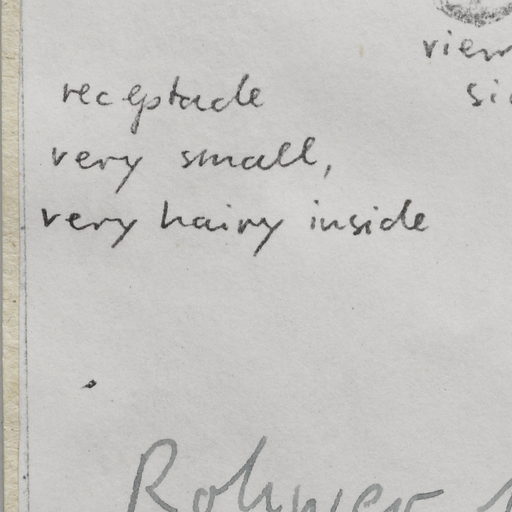 view
receptacle
very small,
very hairy inside
Rohwer